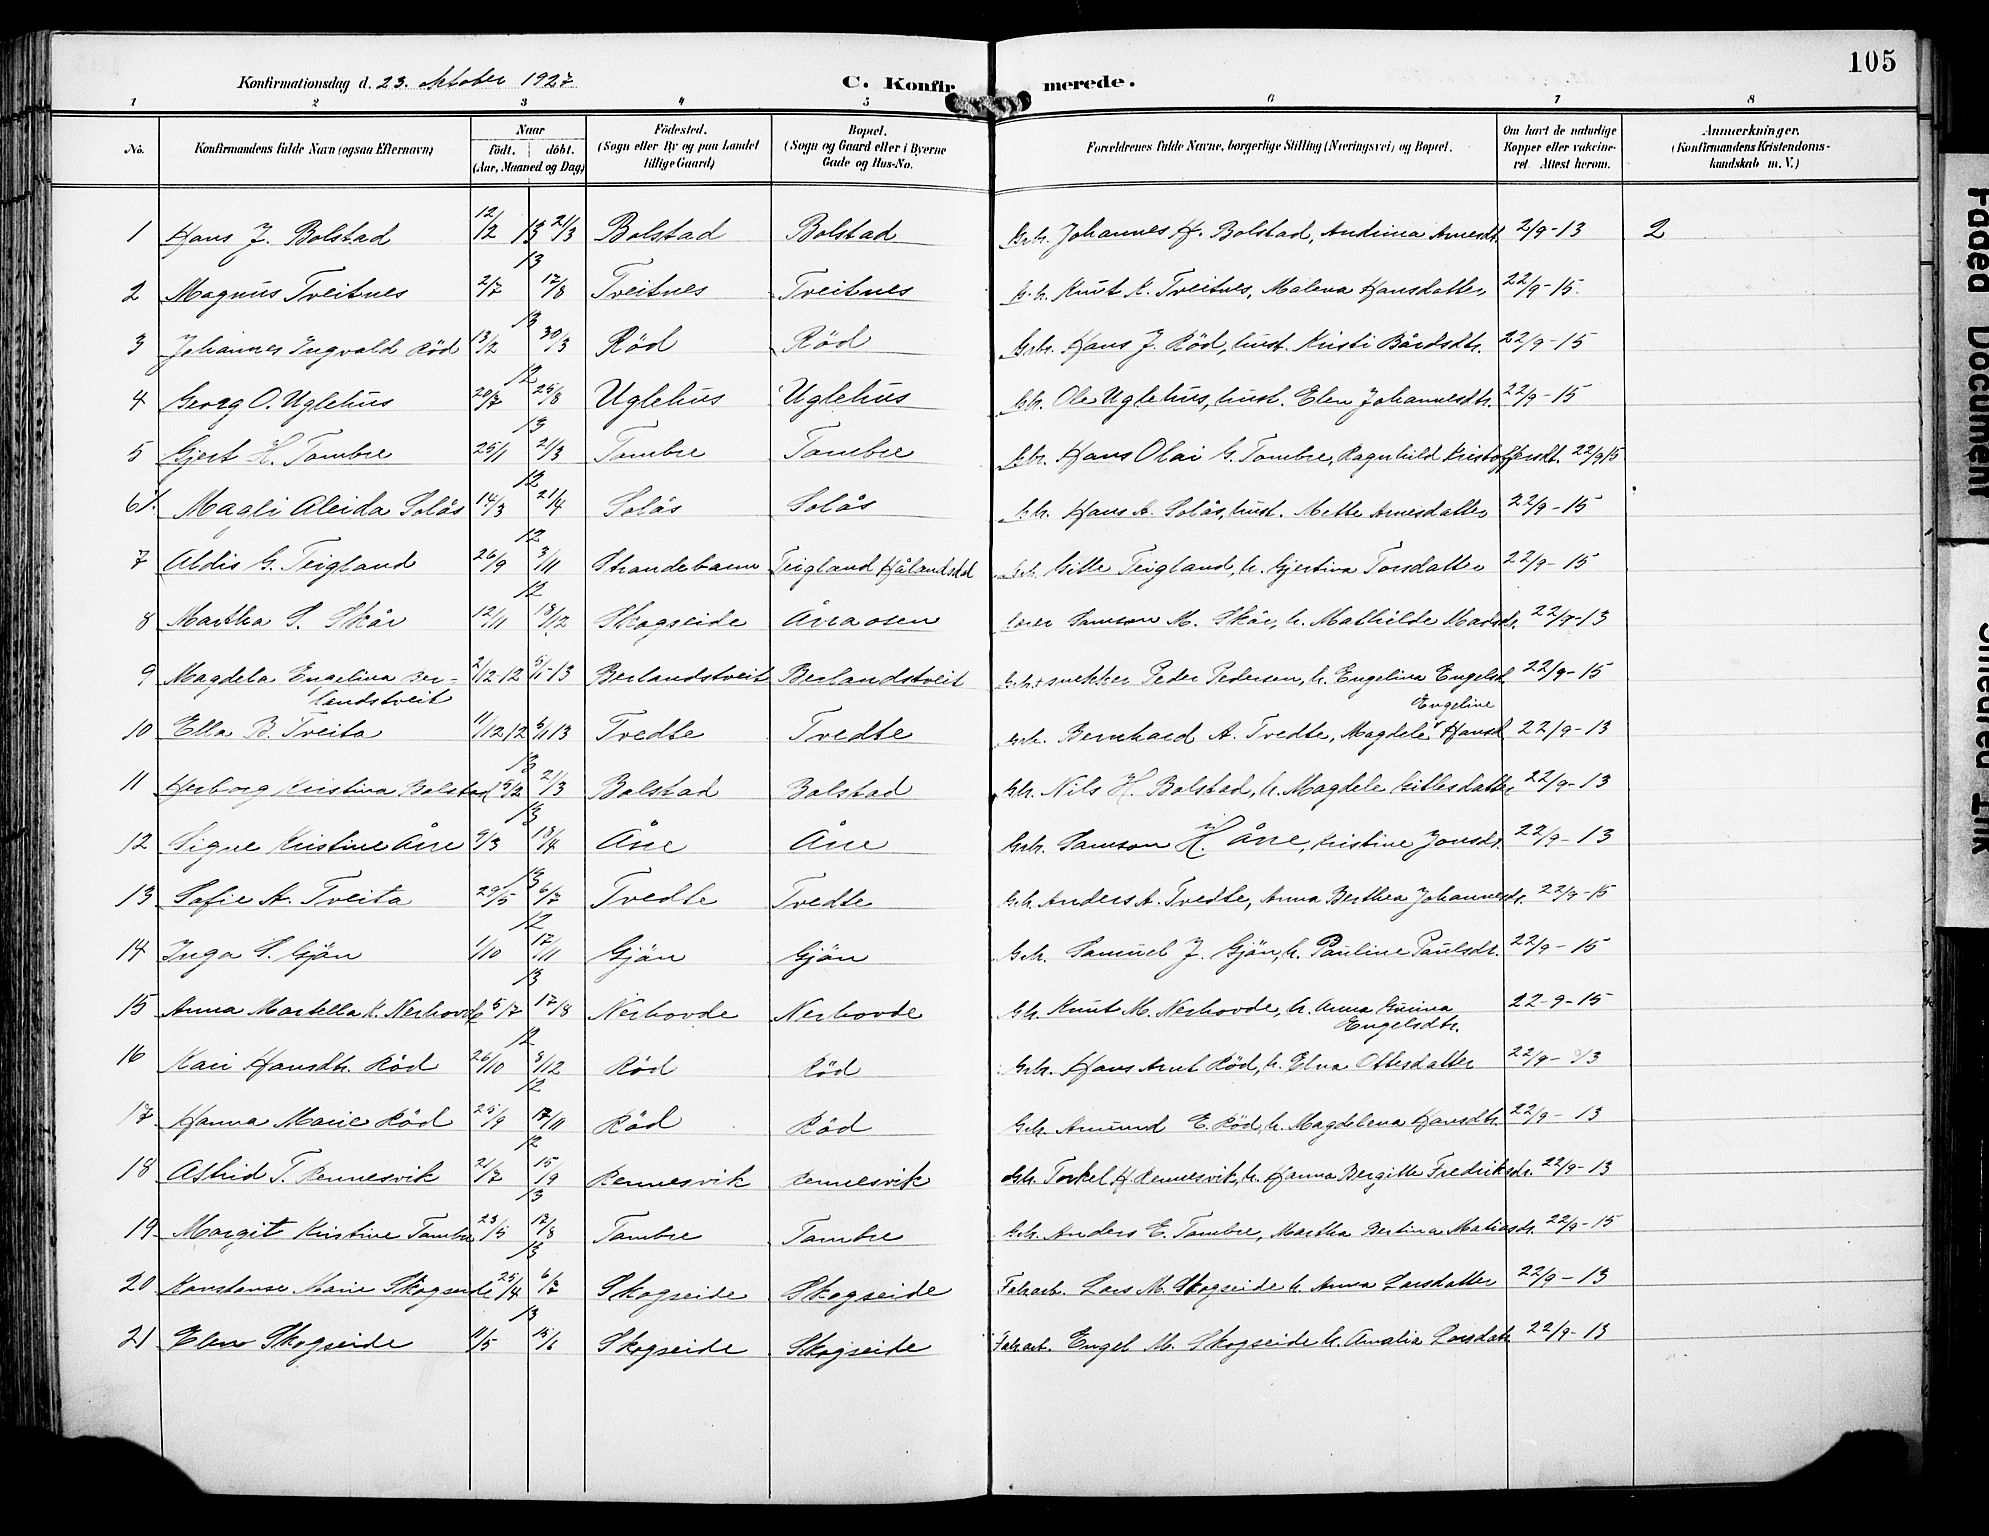 105
Konfirmationsdag d. 23. oktober 1927
C. Konfirmerede.
1 2 3 4 5 6 7 8
No. Konfirmandens fulde Navn (ogsaa Efternavn) Naar født. døbt. (Aar, Maaned og Dag) Födested. (Sogn eller By og paa Landet tillige Gaard) Bopæl. (Sogn og Gaard eller i Byerne Gade og Hus-No. Forældrenes fulde Navne, borgerlige Stilling (Næringsvei) og Bopæl. Om havt de naturlige Kopper eller vakcineret Attest herom. Anmærkninger. (Konfirmandens Kristendomskundskab m. V.)
1 Hans J. Bolstad 12/2 13 21/3 Bolstad Bolstad Gbr. Johannes H. Bolstad, Andrina Arnesdt. 2/9-13 2
13
2 Magnus Tveitnes 2/7 17/8 Tveitnes Tveitnes Knut K. Tveitnes, Malena Hansdatter 22/9-15
13
3 Johannes Ingvald Röd 13/2 30/3 Röd Röd Gbr. Hans J. Röd, hust. Kristi Bårdsdtr. 22/9-15
12
4 Georg O. Uglehus 20/7 25/8 Uglehus Uglehus Gbr. Ole Uglehus, hust. Elen Johannesdt. 22/9-15
13
5 Gjert H. Tombre 25/1 21/3 Tombre Tombre Gbr. Hans Olai G. Tombre, Ragnhild Kristoffersdt. 22/9 15
12
6 Magli Aleida Solås 14/3 21/4 Solås Solås Gbr. Hans A. Solås, hust. Mette Arnesdatter 22/9-15
12
7 Aldis G. Teigland 26/9 3/11 Strandebarm Teigland Gbr. Gitle Teigland, h. Gjertina Torsdatter 22/9-15
12
8 Martha S. Skår 12/11 13/12 Skogseide Åraosen Samson M. Skår, h. Mathilde Madsdt. 22/9-13
9 Magdela Engelina Berlandstveit 2/12 12 5/1-13 Berlandstveit Berlandstveit Gbr. + snekker Peder Pedersen, h. Engelina Engelsd 22/9-15
Engeline
10 Ella B. Tveita 11/12 12 5/1 13 Tvedte Tvedte Gbr. Bernhard A. Tvedte, Magdele Hansd 22/9-13
13
11 Herborg Kristina Bolstad 15/2 21/3 Bolstad Bolstad Gbr. Nils H. Bolstad, h. Magdele Gitlesdatter 22/9-13
13
12 Signe Kristine Åre 9/3 13/4 Åre Åre Gbr. Samson H. Åre, Kristine Jonsdt. 22/9-13
13
13 Sofie A. Tveita 29/5 6/7 Tvedte Tvedte Gbr. Anders A. Tvedte, Anna Berthea Johannesdt. 22/9-15
12
14 Inga S. Gjön 1/10 17/11 Gjön Gjön Gbr. Samuel J. Gjön, h. Pauline Paulsdt. 22/9-15
13
15 Anna Martella K. Nerhovde 5/7 17/8 Nerhovde Nerhovde Gbr. Knut M. Nerhovde, h. Anna Engelsdtr. 22-9-15
12
16 Kari Hansdtr. Röd 26/10 8/12 Röd Röd Gbr. Hans Arnt Röd, h. Elna Ottesdatter 22/9-13
12
17 Hanna Marie Röd 25/9 17/11 Röd Röd Gbr. Amund E. Röd, h. Magdelena Hansdt. 22/9-13
12
18 Astrid T. Rennesvik 21/7 15/9 Rennesvik Rennesvik Gbr. Torkel H Rennesvik, h. Hanna Bergitte Fredriksdr. 22/9-13
13
19 Margit Kristine Tombre 23/5 17/8 Tombre Tombre Gbr. Anders E. Tombre, Martha Bertina Matiasdt. 22/9-15
13
20 Konstanse Marie Skogseide 25/4 6/7 Skogseide Skogseide Fabrarb. Lars M. Skogseide h. Anna Larsdatter 22/9-13
13
21 Elen Skogseide 11/5 15/6 Skogseide Skogseide Fabrarb. Engel M. Skogseide h. Amalia Larsdatt 22/9-13
Faded Document
Smeared Ink